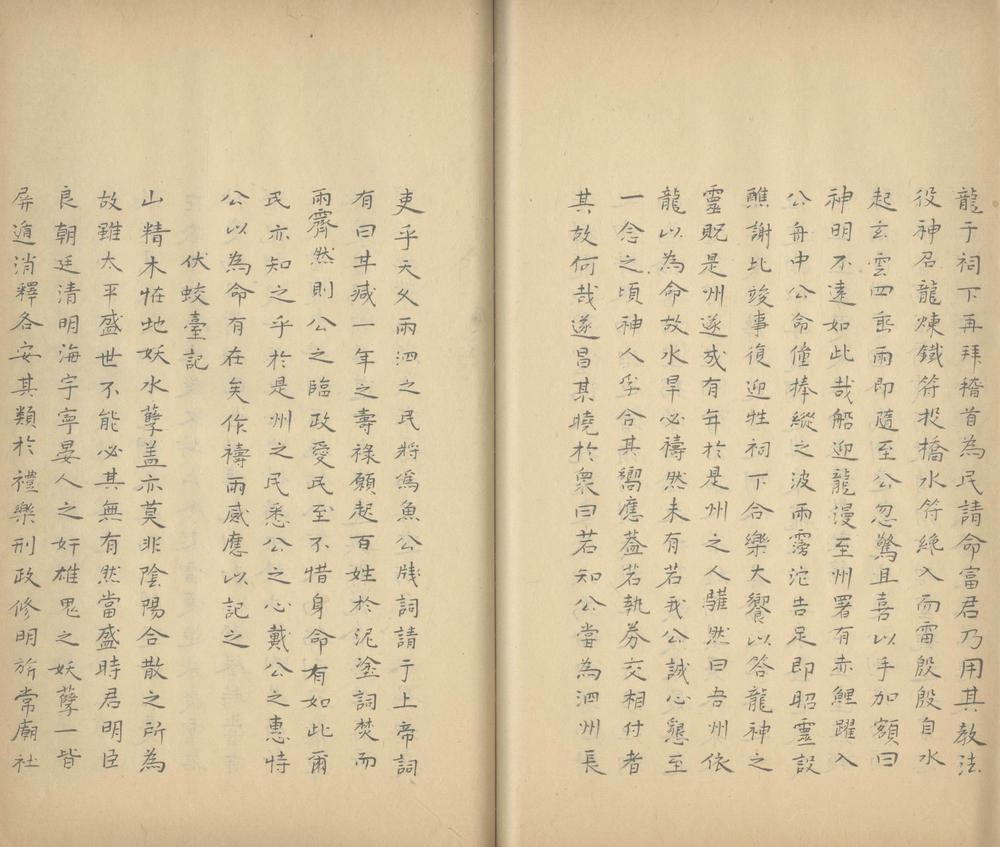 龍于祠下再拜稽首為民請命富君乃用其教法
役神召龍煉鐵符投橋水符纔入而雷殷殷自水
起玄雲四垂雨即隨至公忽驚且喜以手加額曰
神明不遠如此哉船迎龍漫至州署有赤鯉躍入
公舟中公命僮捧縱之波雨霶沱告足即昭靈設
醮謝比竣事復迎牲祠下合樂大饗以答龍神之
靈貺是州遂成有年於是州之人驩然曰吾州依
龍以為命故水旱必禱然未有若我公誠心懇至
一念之頃神人孚合其嚮應葢若執券交相付者
其故何哉遂昌某曉於衆曰若知公嘗為泗州長
吏乎天久雨泗之民將為魚公牋詞請于上帝詞
有曰某减一年之壽祿願起百姓於泥塗詞焚而
雨霽然則公之臨政愛民至不惜身命有如此爾
民亦知之乎於是州之民悉公之心戴公之惠恃
公以為命有在矣作禱雨感應以記之
伏蛟臺記
山精木恠地妖水孽盖亦莫非陰陽合散之所為
故雖太平盛世不能必其無有然當盛時君明臣
良朝廷清明海宇寧晏人之奸雄鬼之妖孽一皆
屏逍消釋各安其類於禮樂刑政修明旂常廟社